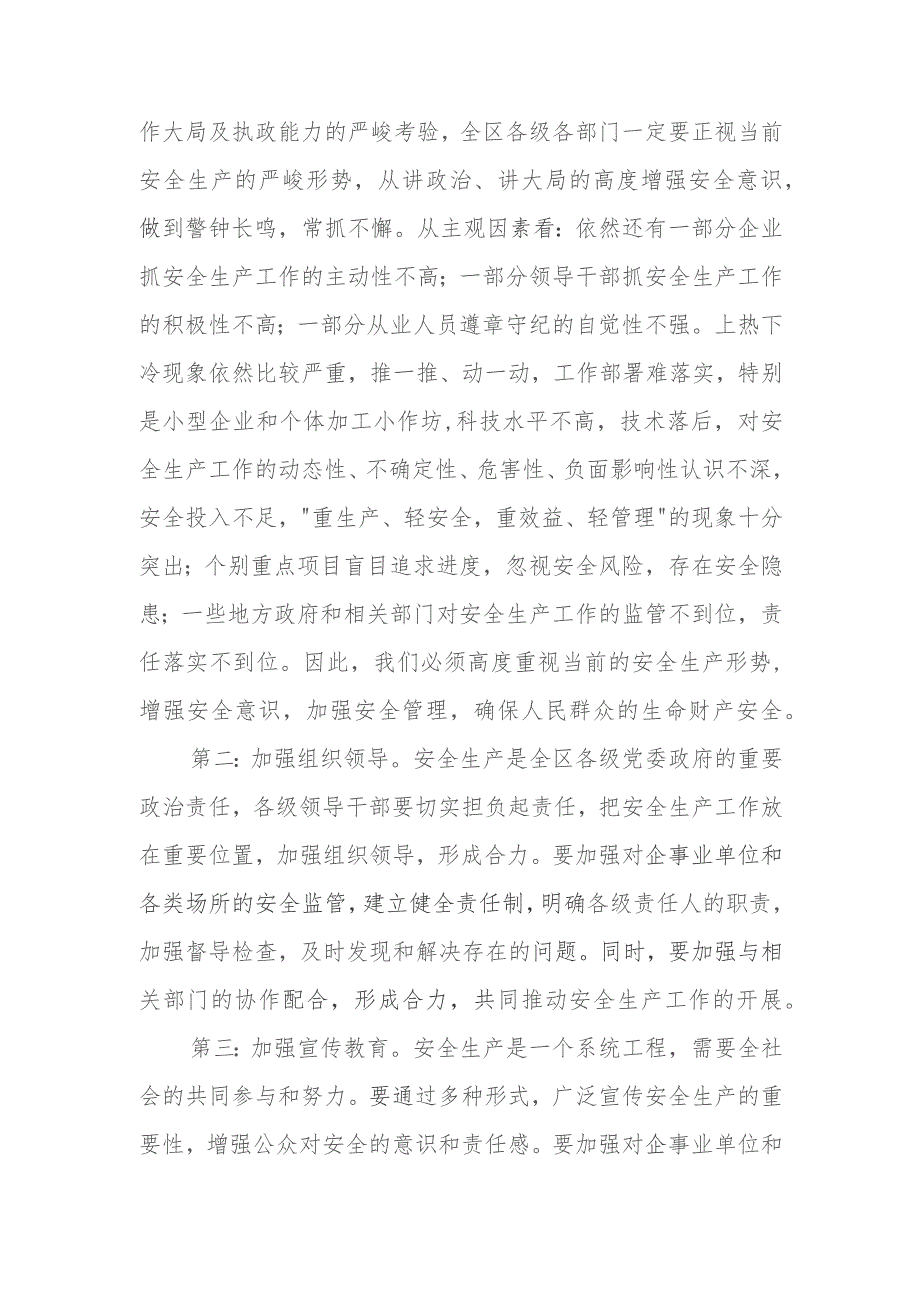 作大局及执政能力的严峻考验，全区各级各部门一定要正视当前
安全生产的严峻形势，从讲政治、讲大局的高度增强安全意识，
做到警钟长鸣，常抓不懈。从主观因素看：依然还有一部分企业
抓安全生产工作的主动性不高；一部分领导干部抓安全生产工作
的积极性不高；一部分从业人员遵章守纪的自觉性不强。上热下
冷现象依然比较严重，推一推、动一动，工作部署难落实，特别
是小型企业和个体加工小作坊,科技水平不高，技术落后，对安
全生产工作的动态性、不确定性、危害性、负面影响性认识不深，
安全投入不足，"重生产、轻安全，重效益、轻管理"的现象十分
突出；个别重点项目盲目追求进度，忽视安全风险，存在安全隐
患；一些地方政府和相关部门对安全生产工作的监管不到位，责
任落实不到位。因此，我们必须高度重视当前的安全生产形势，
增强安全意识，加强安全管理，确保人民群众的生命财产安全。
第二：加强组织领导。安全生产是全区各级党委政府的重要
政治责任，各级领导干部要切实担负起责任，把安全生产工作放
在重要位置，加强组织领导，形成合力。要加强对企事业单位和
各类场所的安全监管，建立健全责任制，明确各级责任人的职责，
加强督导检查，及时发现和解决存在的问题。同时，要加强与相
关部门的协作配合，形成合力，共同推动安全生产工作的开展。
第三：加强宣传教育。安全生产是一个系统工程，需要全社
会的共同参与和努力。要通过多种形式，广泛宣传安全生产的重
要性，增强公众对安全的意识和责任感。要加强对企事业单位和